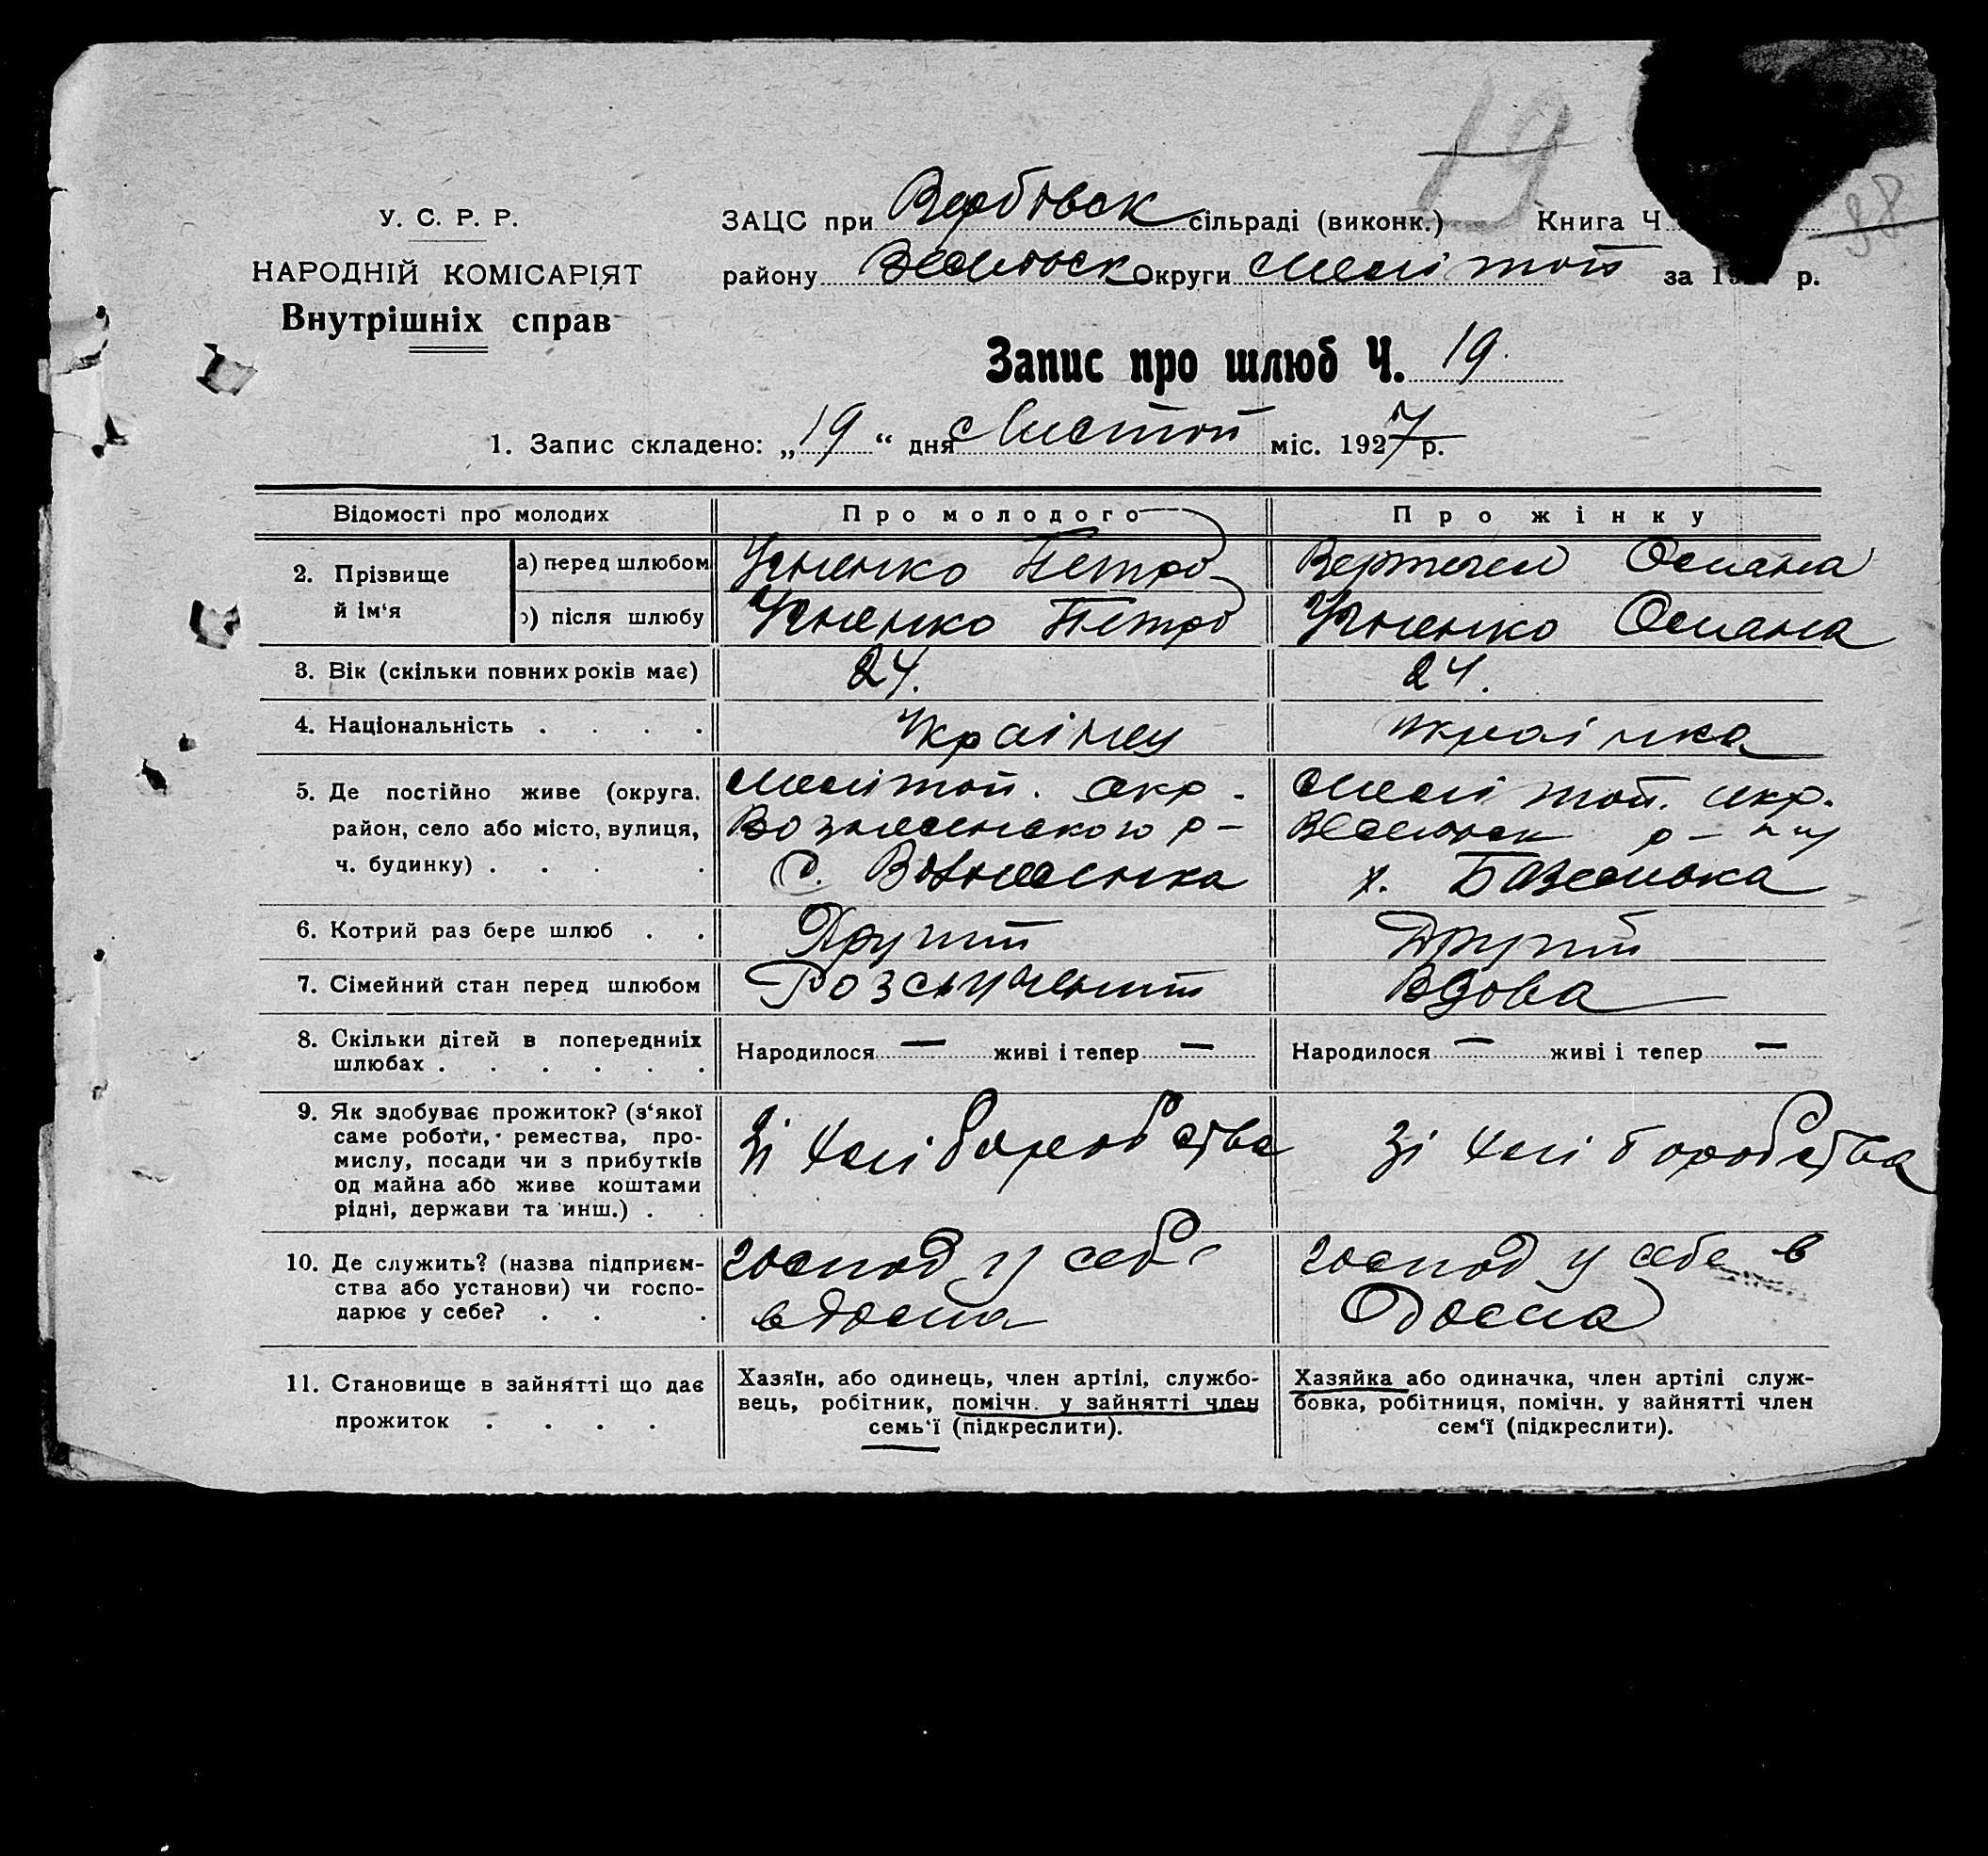 19
38
У. С. Р. Р.
НАРОДНІЙ КОМІСАРІЯТ
Внутрішніх справ
ЗАЦС при Вербовск сільраді (виконк.) Книга Ч
району Веселовск Округи Мелітоп за 19 р.
Запис про шлюб Ч. 19.
1. Запис складено: „19“ дня Листоп міс. 1927 р.
Відомості про молодих Про молодого Про жінку
2. Прізвище й ім‘я
а) перед шлюбом Петро Оксана
) після шлюбу Петро Оксана
3. Вік (скільки повних років має) 24. 24.
4. Національність . . . . Украінец украінка
5. Де постійно живе (округа, Мелітоп. окр. Мелітоп. окр.
район, село або місто, вулиця, Вознесенського р- Веселовск р-ну
ч. будинку) . . . . С. Вознесенка х.
6. Котрий раз бере шлюб . . Другий Другий
7. Сімейний стан перед шлюбом Розлучений Вдова
8. Скільки дітей в попередниіх
шлюбах . . . . . . Народилося — живі і тепер — Народилося — живі і тепер —
9. Як здобуває прожиток? (з‘якої
саме роботи, ремества, про-
мислу, посади чи з прибутків
од майна або живе коштами
рідні, держави та инш.) . .
Зі хліборобства Зі хліборобства
10. Де служить? (назва підприєм-
ства або установи) чи госпо-
дарює у себе? . . .
господ у себе господ у себе в
11. Становище в зайнятті що дає
прожиток . . . .
Хазяїн, або одинець, член артілі, службо-
вець, робітник, помічн. у зайнятті член
семь‘ї (підкреслити).
Хазяйка або одиначка, член артілі служ-
бовка, робітниця, помічн. у зайнятті член
сем‘ї (підкреслити).